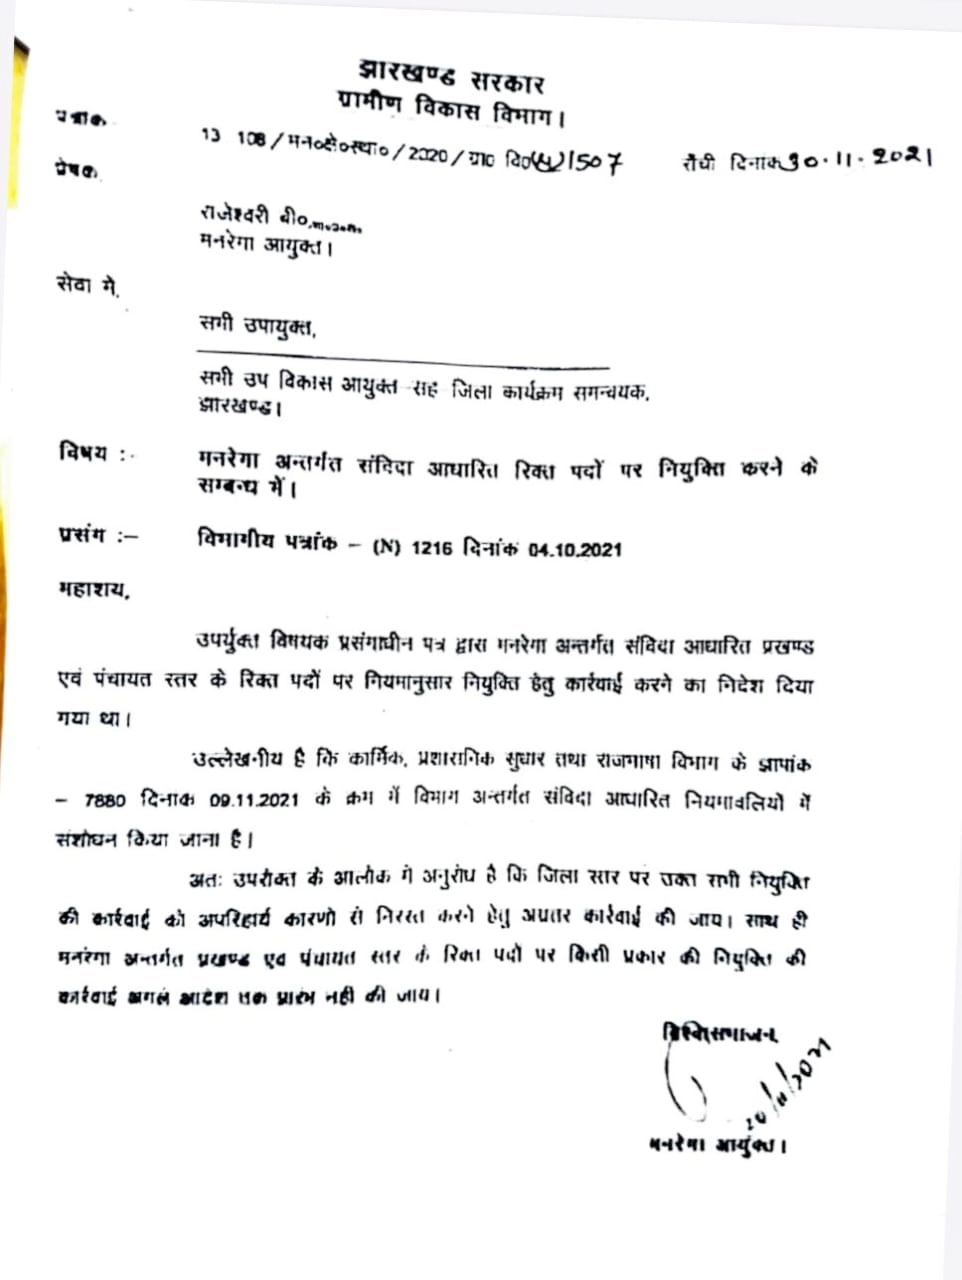 झारखण्ड सरकार
ग्रामीण विकास विभाग।
पत्रांक
13 108 / मन०क्षे०स्था० / 2020 / ग्रा० वि० 1507 राँची दिनांक 30.11.2021
प्रेषक
राजेश्वरी बी०
मनरेगा आयुक्त।
सेवा में,
सभी उपायुक्त,
सभी उप विकास आयुक्त सह जिला कार्यक्रम समन्वयक,
झारखण्ड।
विषय :- मनरेगा अन्तर्गत संविदा आधारित रिक्त पदों पर नियुक्ति करने के
सम्बन्ध में।
प्रसंग :– विभागीय पत्रांक – (N) 1216 दिनांक 04.10.2021
महाशय,
उपर्युक्त विषयक प्रसंगाधीन पत्र द्वारा मनरेगा अन्तर्गत संविदा आधारित प्रखण्ड
एवं पंचायत स्तर के रिक्त पदों पर नियमानुसार नियुक्ति हेतु कार्रवाई करने का निदेश दिया
गया था।
उल्लेखनीय है कि कार्मिक, प्रशासनिक सुधार तथा राजभाषा विभाग के ज्ञापांक
– 7880 दिनांक 09.11.2021 के क्रम में विभाग अन्तर्गत संविदा आधारित नियमावलियों में
संशोधन किया जाना है।
अतः उपरोक्त के आलोक में अनुरोध है कि जिला स्तर पर उक्त सभी नियुक्ति
की कार्रवाई को अपरिहार्य कारणों से निरस्त करने हेतु अग्रतर कार्रवाई की जाय। साथ ही
मनरेगा अन्तर्गत प्रखण्ड एवं पंचायत स्तर के रिक्त पदों पर किसी प्रकार की नियुक्ति की
कार्रवाई अगले आदेश तक प्रारंभ नहीं की जाय।
विश्वासभाजन,
30/11/2021
मनरेगा आयुक्त।